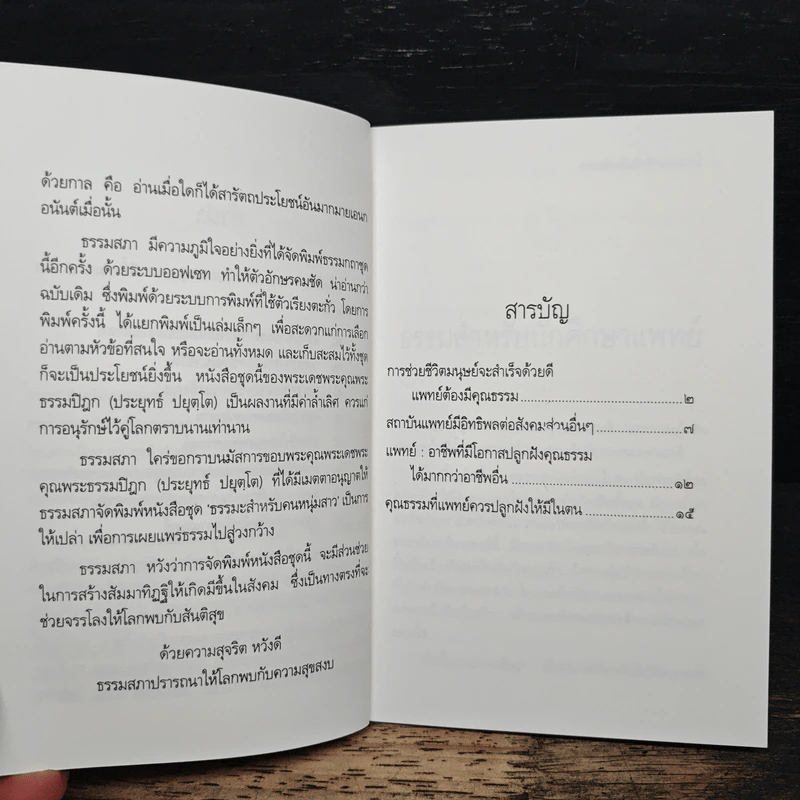 ด้วยกาล คือ อ่านเมื่อใดก็ได้สารัตถประโยชน์อันมากมายเอนก
อนันต์เมื่อนั้น
ธรรมสภา มีความภูมิใจอย่างยิ่งที่ได้จัดพิมพ์ธรรมกถาชุด
นี้อีกครั้ง ด้วยระบบออฟเซท ทำให้ตัวอักษรคมชัด น่าอ่านกว่า
ฉบับเดิม ซึ่งพิมพ์ด้วยระบบการพิมพ์ที่ใช้ตัวเรียงตะกั่ว โดยการ
พิมพ์ครั้งนี้ ได้แยกพิมพ์เป็นเล่มเล็กๆ เพื่อสะดวกแก่การเลือก
อ่านตามหัวข้อที่สนใจ หรือจะอ่านทั้งหมด และเก็บสะสมไว้ทั้งชุด
ก็จะเป็นประโยชน์ยิ่งขึ้น หนังสือชุดนี้ของพระเดชพระคุณพระ
ธรรมปิฎก (ประยุทธ์ ปยุตฺโต) เป็นผลงานที่มีค่าล้ำเลิศ ควรแก่
การอนุรักษ์ไว้คู่โลกตราบนานเท่านาน
ธรรมสภา ใคร่ขอกราบนมัสการขอบพระคุณพระเดชพระ
คุณพระธรรมปิฎก (ประยุทธ์ ปยุตฺโต) ที่ได้มีเมตตาอนุญาตให้
ธรรมสภาจัดพิมพ์หนังสือชุด 'ธรรมะสำหรับคนหนุ่มสาว' เป็นการ
ให้เปล่า เพื่อการเผยแพร่ธรรมไปสู่วงกว้าง
ธรรมสภา หวังว่าการจัดพิมพ์หนังสือชุดนี้ จะมีส่วนช่วย
ในการสร้างสัมมาทิฏฐิให้เกิดมีขึ้นในสังคม ซึ่งเป็นทางตรงที่จะ
ช่วยจรรโลงให้โลกพบกับสันติสุข
ด้วยความสุจริต หวังดี
ธรรมสภาปรารถนาให้โลกพบกับความสุขสงบ
สารบัญ
การช่วยชีวิตมนุษย์จะสำเร็จด้วยดี
แพทย์ต้องมีคุณธรรม ........................................ ๒
สถาบันแพทย์มีอิทธิพลต่อสังคมส่วนอื่นๆ ........................ ๗
แพทย์ : อาชีพที่มีโอกาสปลูกฝังคุณธรรม
ได้มากกว่าอาชีพอื่น ........................................ ๑๒
คุณธรรมที่แพทย์ควรปลูกฝังให้มีในตน ........................ ๑๕